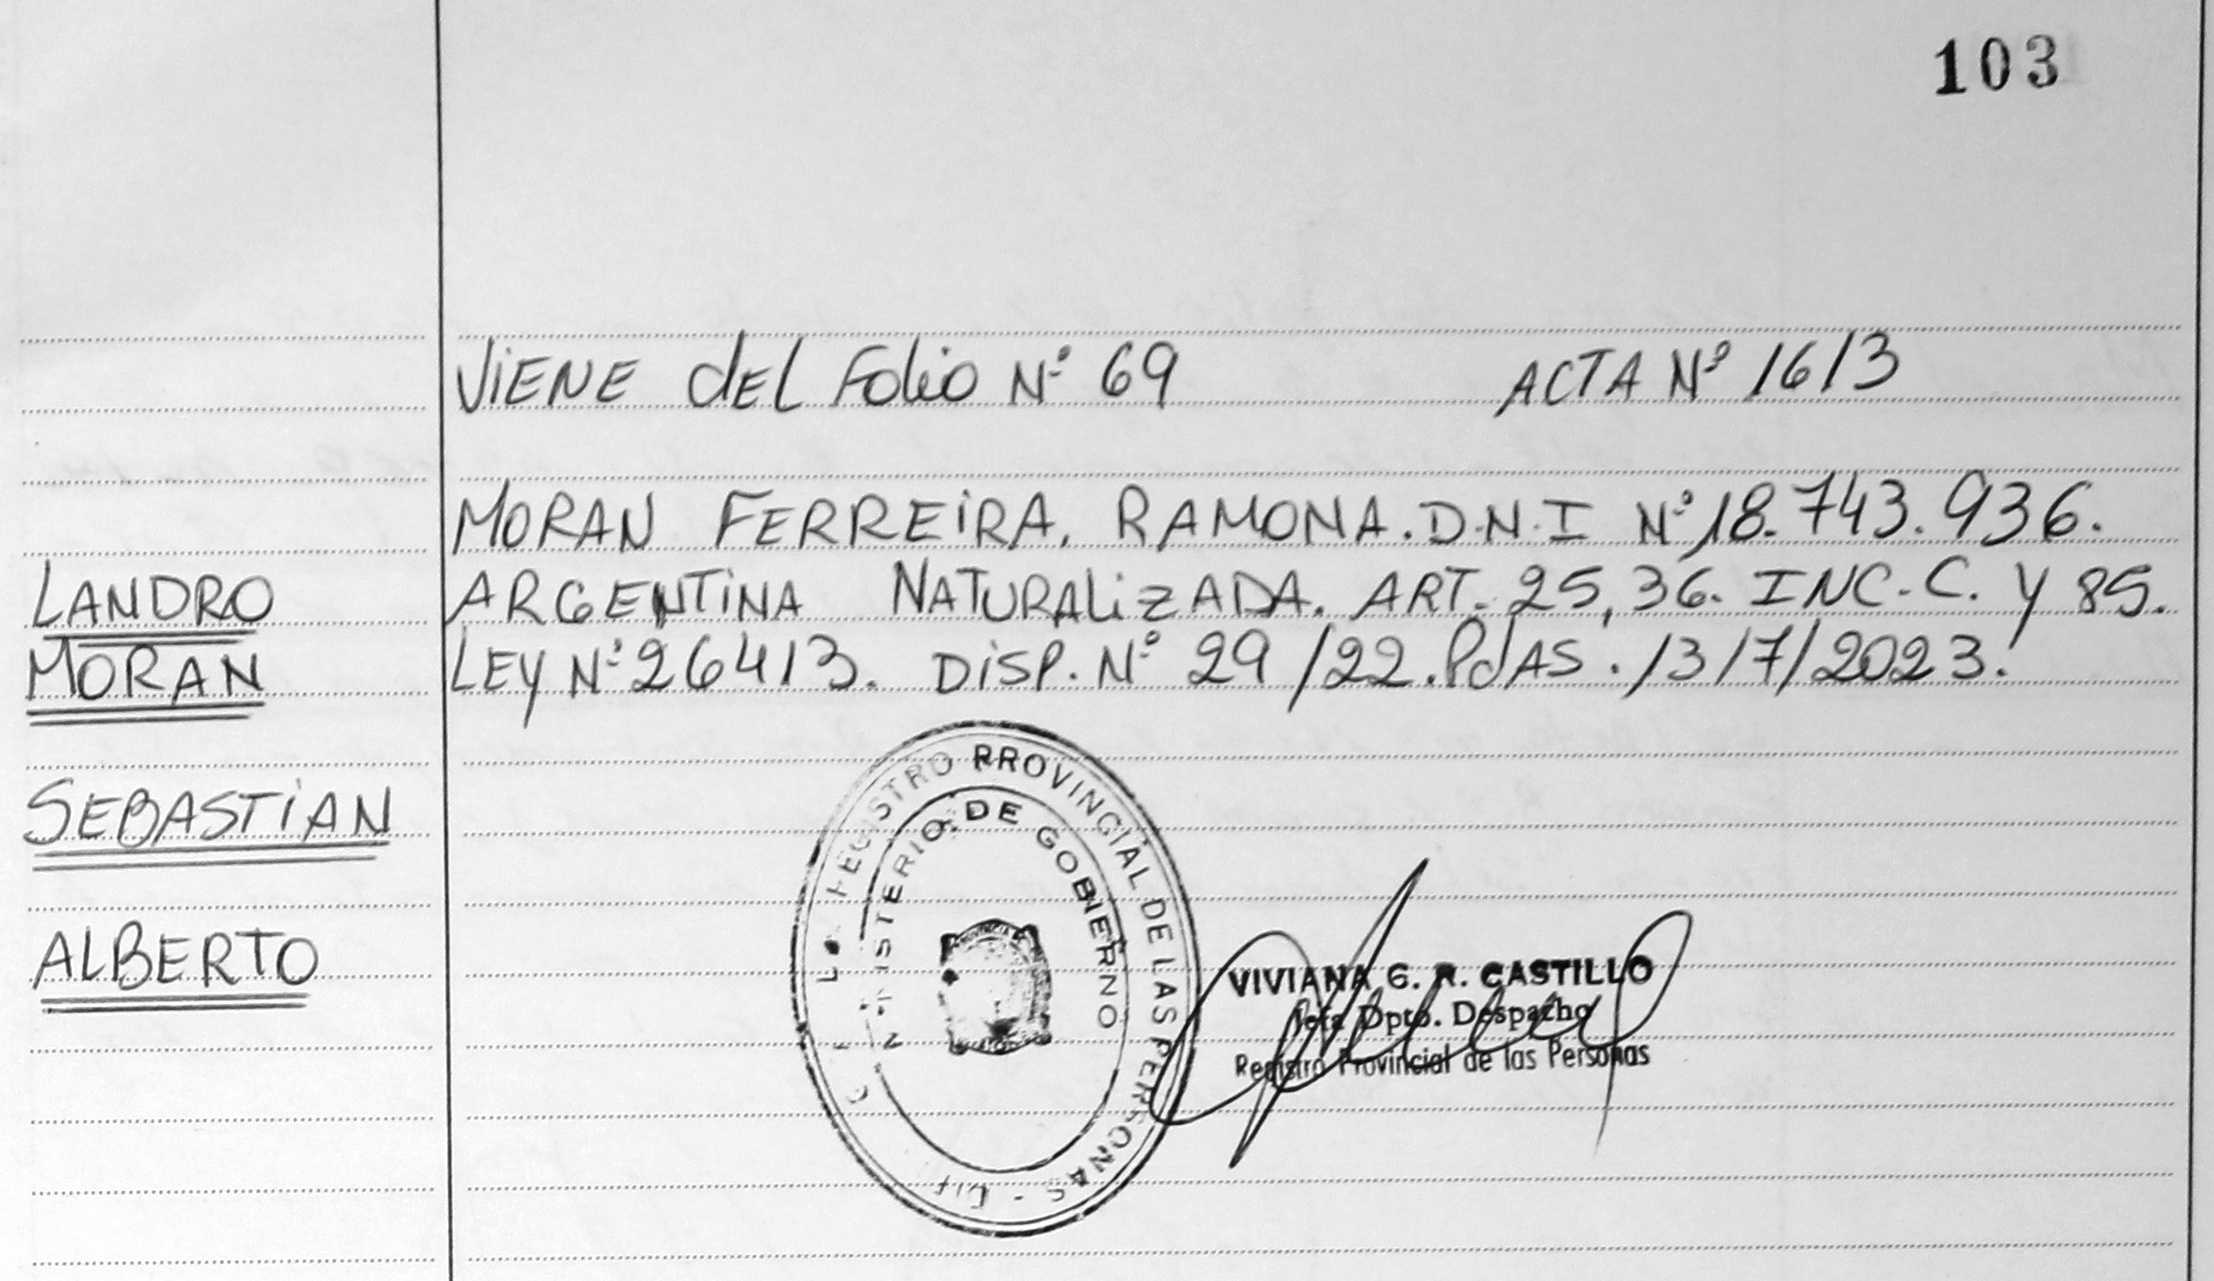 103
VIENE DEL FOLIO Nº 69 ACTA Nº 1613
MORAN FERREIRA. RAMONA. D.N.I Nº 18.743.936.
LANDRO ARGENTINA NATURALIZADA. ART. 25, 36. INC. C. Y 85.
MORAN LEY Nº 26413. DISP. Nº 29/22. PdAS. 13/7/2023.
SEBASTIAN
ALBERTO
REGISTRO PROVINCIAL DE LAS PERSONAS
MINISTERIO DE GOBIERNO
VIVIANA G. R. CASTILLO
Jefa Dpto. Despacho
Registro Provincial de las Personas